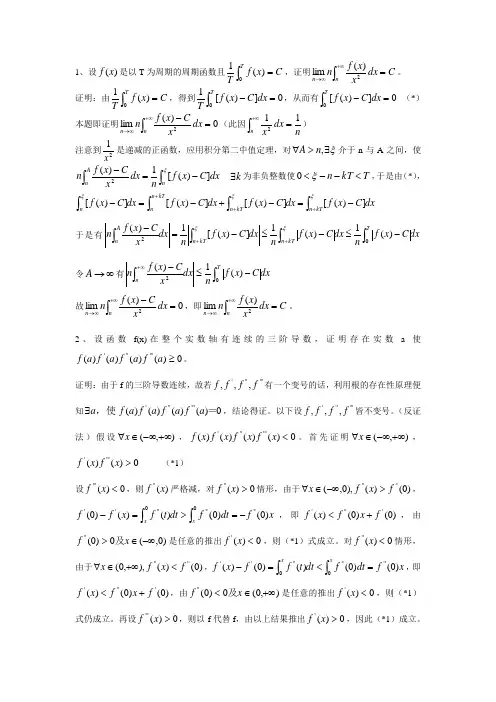 1、设 f(x) 是以 T 为周期的周期函数且 \frac{1}{T}\int_0^T f(x) = C ，证明 \lim_{n\to\infty} n\int_n^{+\infty} \frac{f(x)}{x^2}dx = C 。
证明：由 \frac{1}{T}\int_0^T f(x) = C ，得到 \frac{1}{T}\int_0^T [f(x)-C]dx = 0 ，从而有 \int_0^T [f(x)-C]dx = 0 （*）
本题即证明 \lim_{n\to\infty} n\int_n^{+\infty} \frac{f(x)-C}{x^2}dx = 0 （此因 \int_n^{+\infty} \frac{1}{x^2}dx = \frac{1}{n} ）
注意到 \frac{1}{x^2} 是递减的正函数，应用积分第二中值定理，对 ∀A > n, ∃ξ 介于 n 与 A 之间，使
n\int_n^A \frac{f(x)-C}{x^2}dx = \frac{1}{n}\int_n^ξ [f(x)-C]dx ∃k 为非负整数使 0 < ξ - n - kT < T ，于是由（*），
\int_n^ξ [f(x)-C]dx = \int_n^{n+kT} [f(x)-C]dx + \int_{n+kT}^ξ [f(x)-C]dx = \int_{n+kT}^ξ [f(x)-C]dx
于是有 |n\int_n^A \frac{f(x)-C}{x^2}dx| = |\frac{1}{n}\int_{n+kT}^ξ [f(x)-C]dx| ≤ \frac{1}{n}\int_{n+kT}^ξ |f(x)-C|dx ≤ \frac{1}{n}\int_0^T |f(x)-C|dx
令 A → ∞ 有 |n\int_n^{+\infty} \frac{f(x)-C}{x^2}dx| ≤ \frac{1}{n}\int_0^T |f(x)-C|dx
故 \lim_{n\to\infty} n\int_n^{+\infty} \frac{f(x)-C}{x^2}dx = 0 ，即 \lim_{n\to\infty} n\int_n^{+\infty} \frac{f(x)}{x^2}dx = C 。
2、设函数 f(x) 在整个实数轴有连续的三阶导数，证明存在实数 a 使
f(a)f'(a)f''(a)f'''(a) ≥ 0 。
证明：由于 f 的三阶导数连续，故若 f, f', f'', f''' 有一个变号的话，利用根的存在性原理便
知 ∃a，使 f(a)f'(a)f''(a)f'''(a)=0 ，结论得证。以下设 f, f', f'', f''' 皆不变号。（反证
法）假设 ∀x ∈ (-∞,+∞) ， f(x)f'(x)f''(x)f'''(x) < 0 。首先证明 ∀x ∈ (-∞,+∞) ，
f'(x)f'''(x) > 0 （*1）
设 f'''(x) < 0 ，则 f''(x) 严格减，对 f''(x) > 0 情形，由于 ∀x ∈ (-∞,0), f''(x) > f''(0) ，
f'(0) - f'(x) = \int_x^0 f''(t)dt > \int_x^0 f''(0)dt = -f''(0)x ，即 f'(x) < f''(0)x + f'(0) ，由
f''(0) > 0及x ∈ (-∞,0) 是任意的推出 f'(x) < 0 ，则（*1）式成立。对 f''(x) < 0 情形，
由于 ∀x ∈ (0,+∞), f''(x) < f''(0) ， f'(x) - f'(0) = \int_0^x f''(t)dt < \int_0^x f''(0)dt = f''(0)x ，即
f'(x) < f''(0)x + f'(0) ，由 f''(0) < 0及x ∈ (0,+∞) 是任意的推出 f'(x) < 0 ，则（*1）
式仍成立。再设 f'''(x) > 0 ，则以 f 代替 f，由以上结果推出 f'(x) > 0 ，因此（*1）成立。